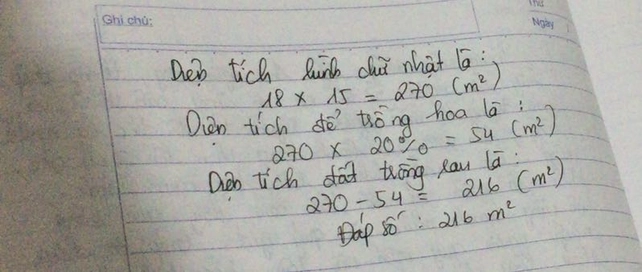 Ghi chú:
Thứ
Ngày
Diện tích hình chữ nhật là:
18 x 15 = 270 (m²)
Diện tích để trồng hoa là:
270 x 20% = 54 (m²)
Diện tích đất trồng rau là:
270 - 54 = 216 (m²)
Đáp số: 216 m²